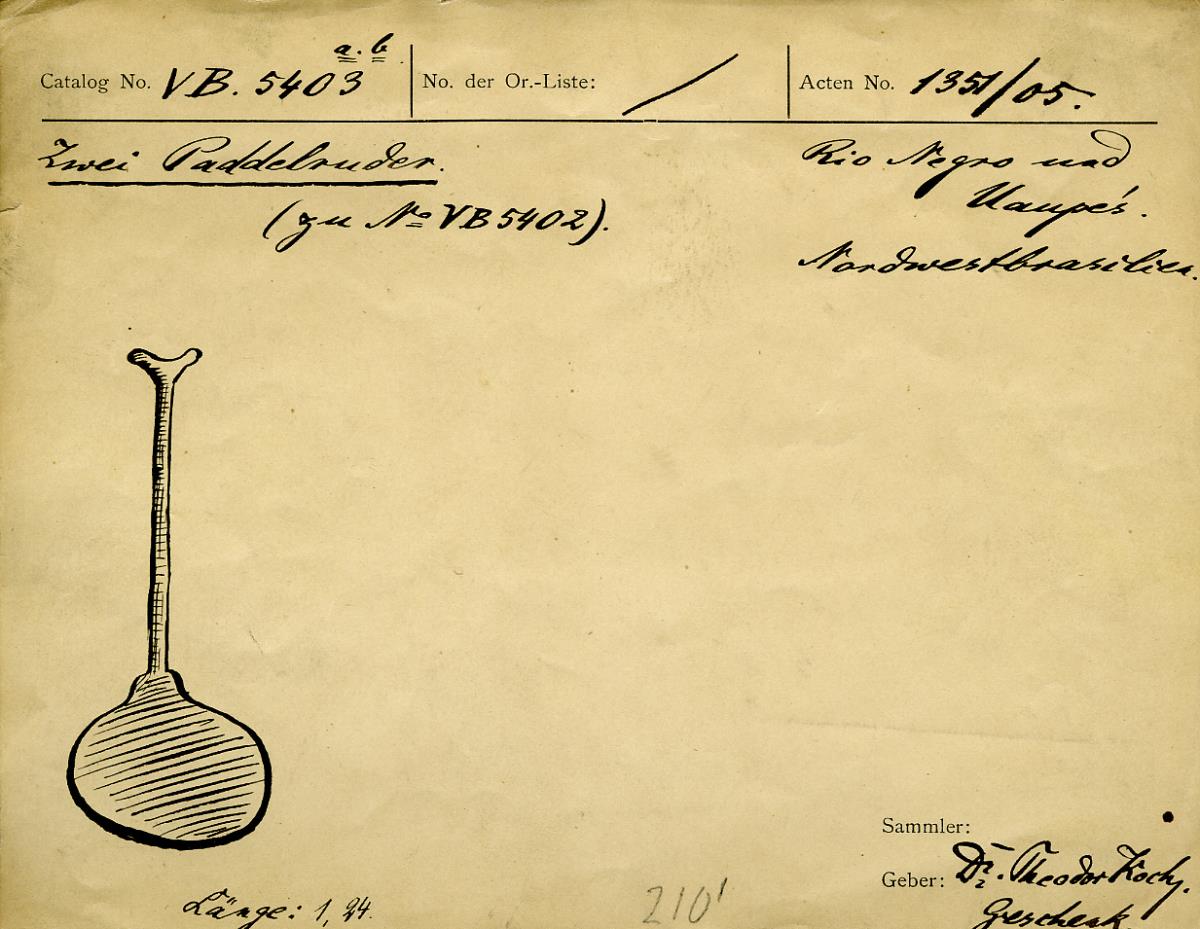 a. b
Catalog No. VB. 5403
No. der Or.-Liste: /
Acten No. 1351/05.
Zwei Paddelruder.
(zu No VB 5402).
Rio Negro und
Uaupés.
Nordwestbrasilien.
Sammler:
Geber: Dr. Theodor Koch,
Geschenk
Länge: 1,24.
210'